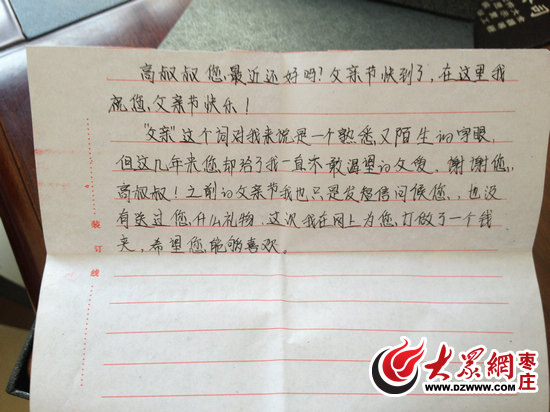 高叔叔您,最近还好吗?父亲节快到了,在这里我
祝您,父亲节快乐!
"父亲"这个词对我来说是一个熟悉又陌生的字眼
但这几年来您,却给了我一直不敢渴望的父爱,谢谢您,
高叔叔!之前的父亲节我也只是发短信问候您,也没
有送过您,什么礼物,这次我在网上为您,订做了一个钱
夹,希望您,能够喜欢。
装
订
线
大众網
枣庄
WWW.DZWWW.COM